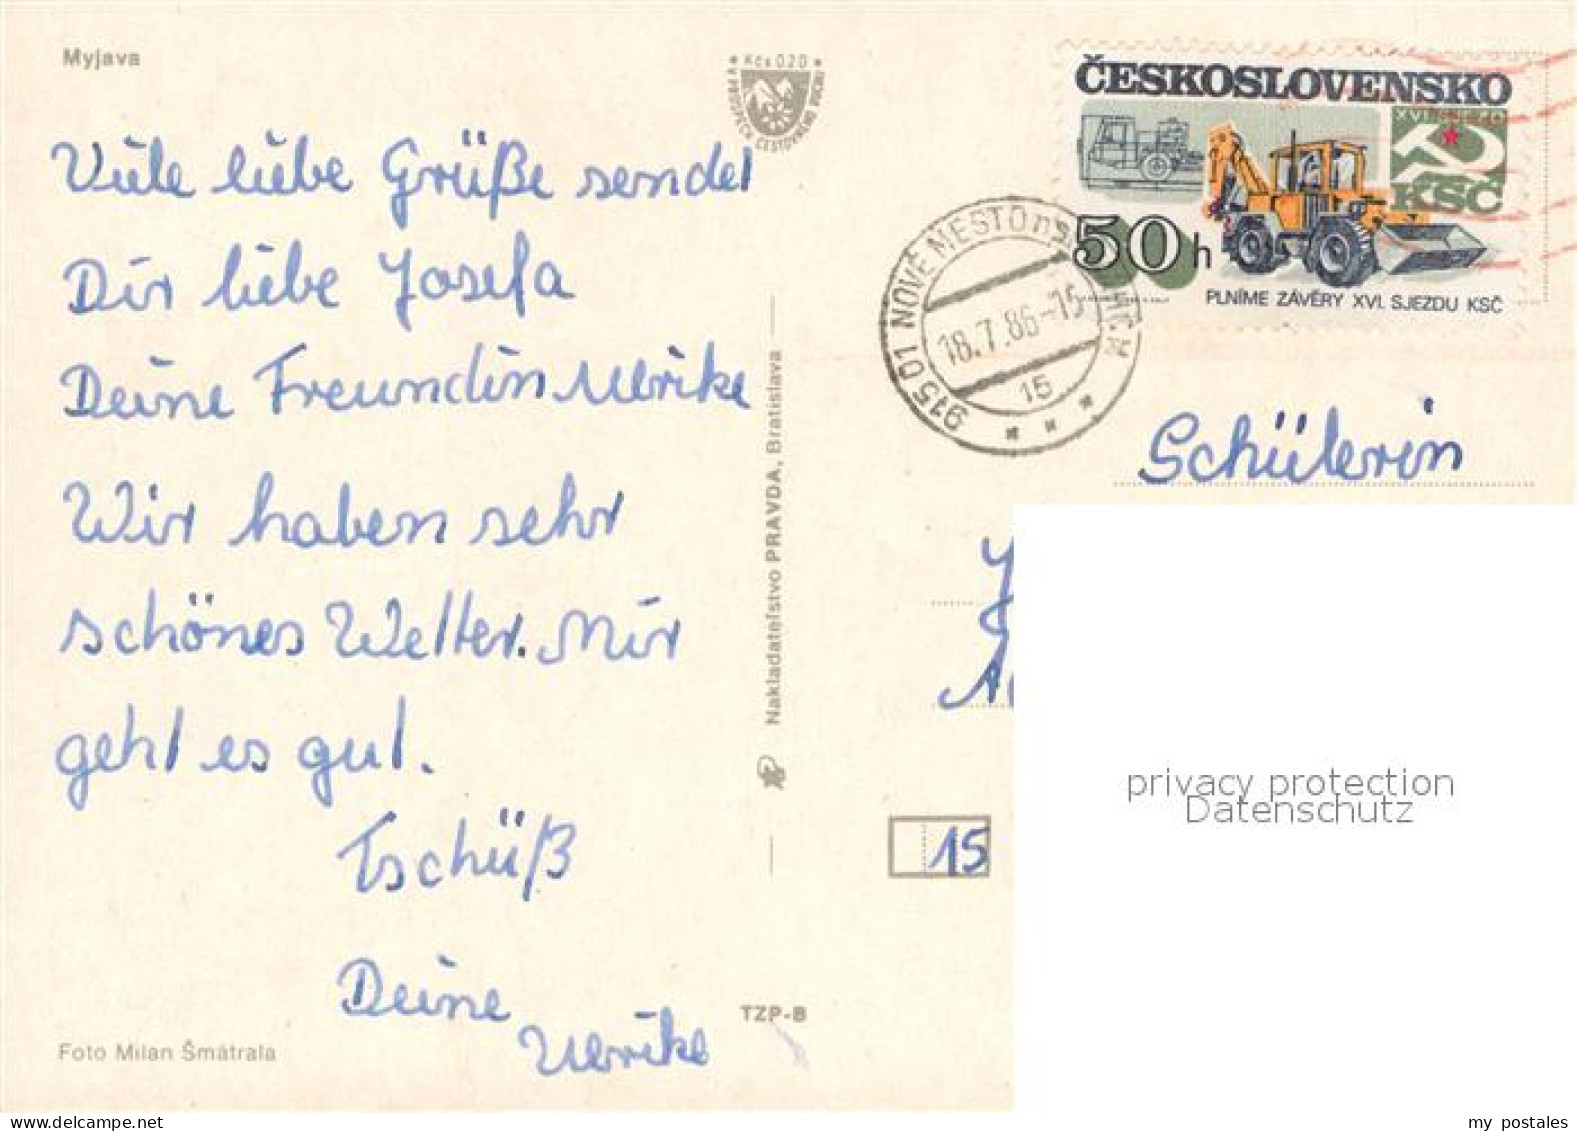 Myjava
* Kčs 0.20 *
Viele liebe Grüße sendet
Dir liebe Josefa
Deine Freundin Ulrike
Wir haben sehr
schönes Wetter. Mir
geht es gut.
Tschüß
Deine
Ulrike
Foto Milan Šmátrala
Nakladateľstvo PRAVDA, Bratislava
TZP-B
ČESKOSLOVENSKO
XVI. SJEZD
KSČ
50h
PLNÍME ZÁVĚRY XVI. SJEZDU KSČ
915 01 NOVÉ MESTO n.
18.7.86-15
15
Schülerin
15
privacy protection
Datenschutz
my postales